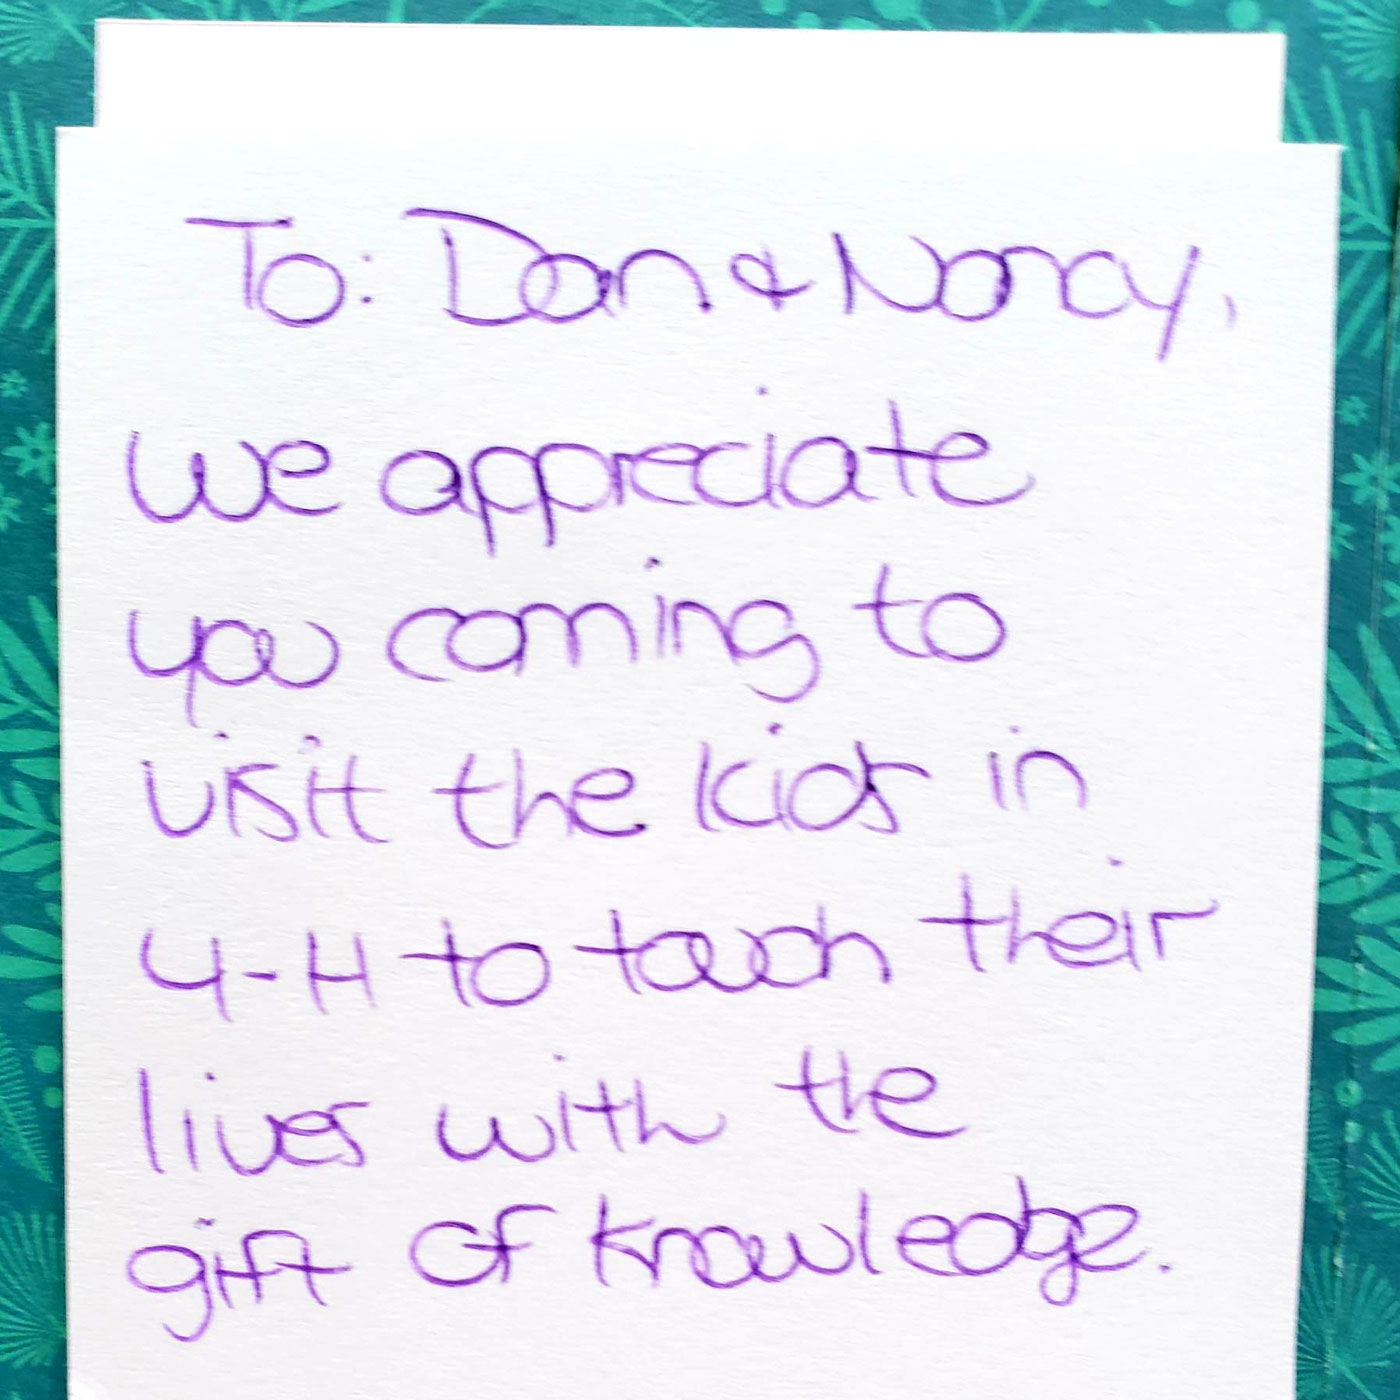 To: Dan & Nancy,
we appreciate
you coming to
visit the kids in
4-H to touch their
lives with the
gift of knowledge.